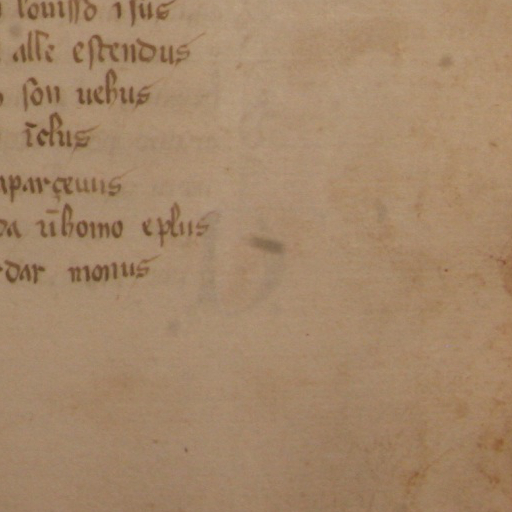 louisso isus
alle estendus
son uehus
ĩclus
aparçeuus
da ũhomo eplus
dar monus